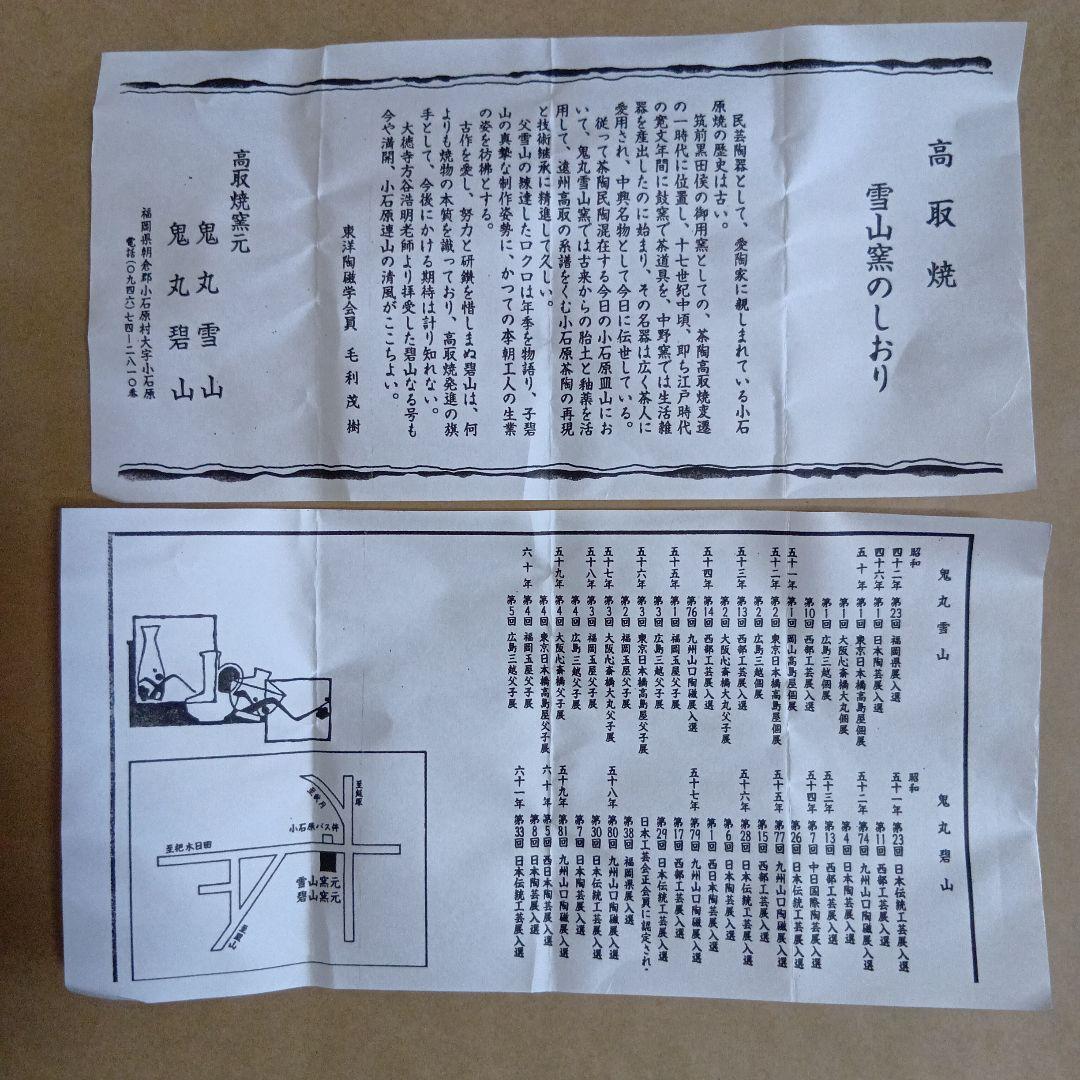 高取焼
雪山窯のしおり
民芸陶器として、愛陶家に親しまれている小石
原焼の歴史は古い。
筑前黒田侯の御用窯としての、茶陶高取焼変遷
の一時代に位置し、十七世紀中頃、即ち江戸時代
の寛文年間に鼓窯で茶道具を、中野窯では生活雑
器を産出したのに始まり、その名器は広く茶人に
愛用され、中興名物として今日に伝世している。
従って茶陶民陶混在する今日の小石原皿山にお
いて、鬼丸雪山窯では古来からの胎土と釉薬を活
用して、遠州高取の系譜をくむ小石原茶陶の再現
と技術継承に精進して久しい。
父雪山の練達したロクロは年季を物語り、子碧
山の真摯な制作姿勢に、かつての李朝工人の生業
の姿を彷彿とする。
古作を愛し、努力と研鑚を惜しまぬ碧山は、何
よりも焼物の本質を識っており、高取焼発進の旗
手として、今後にかける期待は計り知れない。
大徳寺方谷浩明老師より拝受した碧山なる号も
今や満開、小石原連山の清風がここちよい。
東洋陶磁学会員 毛利茂樹
高取焼窯元
鬼丸雪山
鬼丸碧山
福岡県朝倉郡小石原村大字小石原
電話(〇九四六)七四-二八一〇番
鬼丸雪山
昭和
四十二年 第23回 福岡県展入選
四十六年 第1回 日本陶芸展入選
五十年 第1回 東京日本橋高島屋個展
第1回 大阪心斎橋大丸個展
第1回 広島三越個展
第10回 西部工芸展入選
五十一年 第1回 岡山高島屋個展
五十二年 第2回 東京日本橋高島屋個展
第2回 広島三越個展
五十三年 第13回 西部工芸展入選
第2回 大阪心斎橋大丸父子展
五十四年 第14回 西部工芸展入選
第76回 九州山口陶磁展入選
五十五年 第1回 福岡玉屋父子展
第3回 広島三越父子展
五十六年 第3回 東京日本橋高島屋父子展
第2回 福岡玉屋父子展
五十七年 第3回 大阪心斎橋大丸父子展
五十八年 第3回 福岡玉屋父子展
第4回 広島三越父子展
五十九年 第4回 大阪心斎橋父子展
第4回 東京日本橋高島屋父子展
六十年 第4回 福岡玉屋父子展
第5回 広島三越父子展
鬼丸碧山
昭和
五十一年 第23回 日本伝統工芸展入選
第11回 西部工芸展入選
五十二年 第74回 九州山口陶磁展入選
第4回 日本陶芸展入選
五十三年 第13回 西部工芸展入選
五十四年 第7回 中日国際陶芸展入選
第26回 日本伝統工芸展入選
五十五年 第77回 九州山口陶磁展入選
第15回 西部工芸展入選
五十六年 第28回 日本伝統工芸展入選
第6回 日本陶芸展入選
第1回 西日本陶芸展入選
五十七年 第79回 九州山口陶磁展入選
第17回 西部工芸展入選
第29回 日本伝統工芸展入選
日本工芸会正会員に認定され、
第38回 福岡県展入選
五十八年 第80回 九州山口陶磁展入選
第30回 日本伝統工芸展入選
第7回 日本陶芸展入選
五十九年 第81回 九州山口陶磁展入選
六十年 第5回 西日本陶芸展入選
第8回 日本陶芸展入選
六十一年 第33回 日本伝統工芸展入選
至飯塚
至秋月
小石原バス停
至杷木日田
雪山窯元
碧山窯元